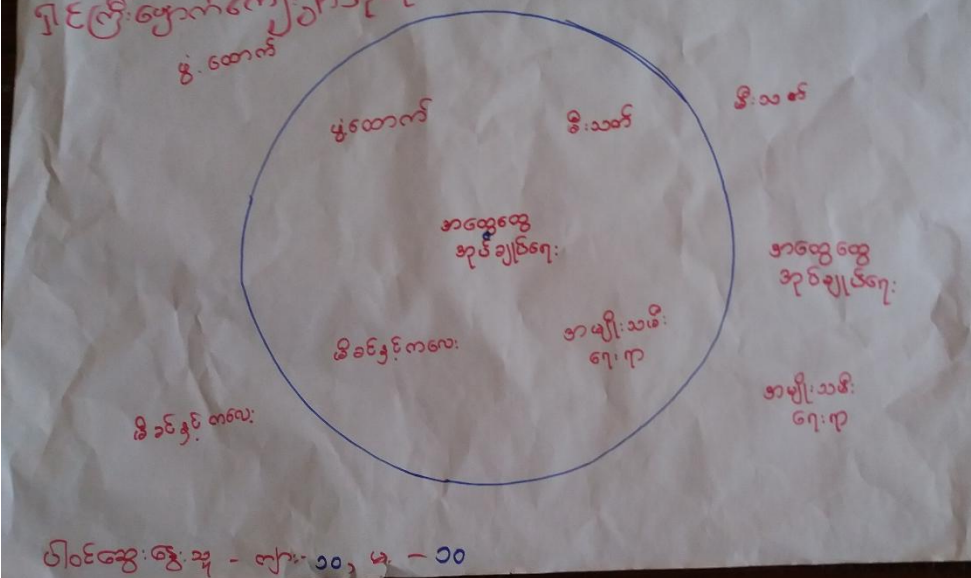 ဖွံ့ထောက်
ဖွံ့ထောက်
မီးသတ်
မီးသတ်
အထွေထွေ
အုပ်ချုပ်ရေး
အထွေထွေ
အုပ်ချုပ်ရေး
မိခင်နှင့်ကလေး
အမျိုးသမီး
ရေးရာ
အမျိုးသမီး
ရေးရာ
မိခင်နှင့် ကလေး
ပါဝင်ဆွေးနွေးသူ - ကျား- ၁၀, မ - ၁၀